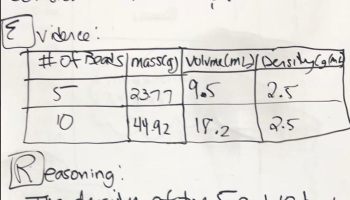 Evidence:
# of Beads mass(g) volume(mL) Density(g/mL)
5 23.77 9.5 2.5
10 44.92 18.2 2.5
Reasoning:
The density of the 5